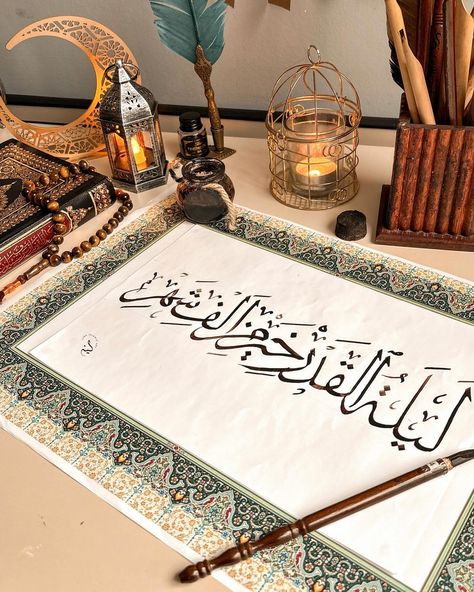 لَيْلَةُ الْقَدْرِ خَيْرٌ مِّنْ أَلْفِ شَهْرٍ